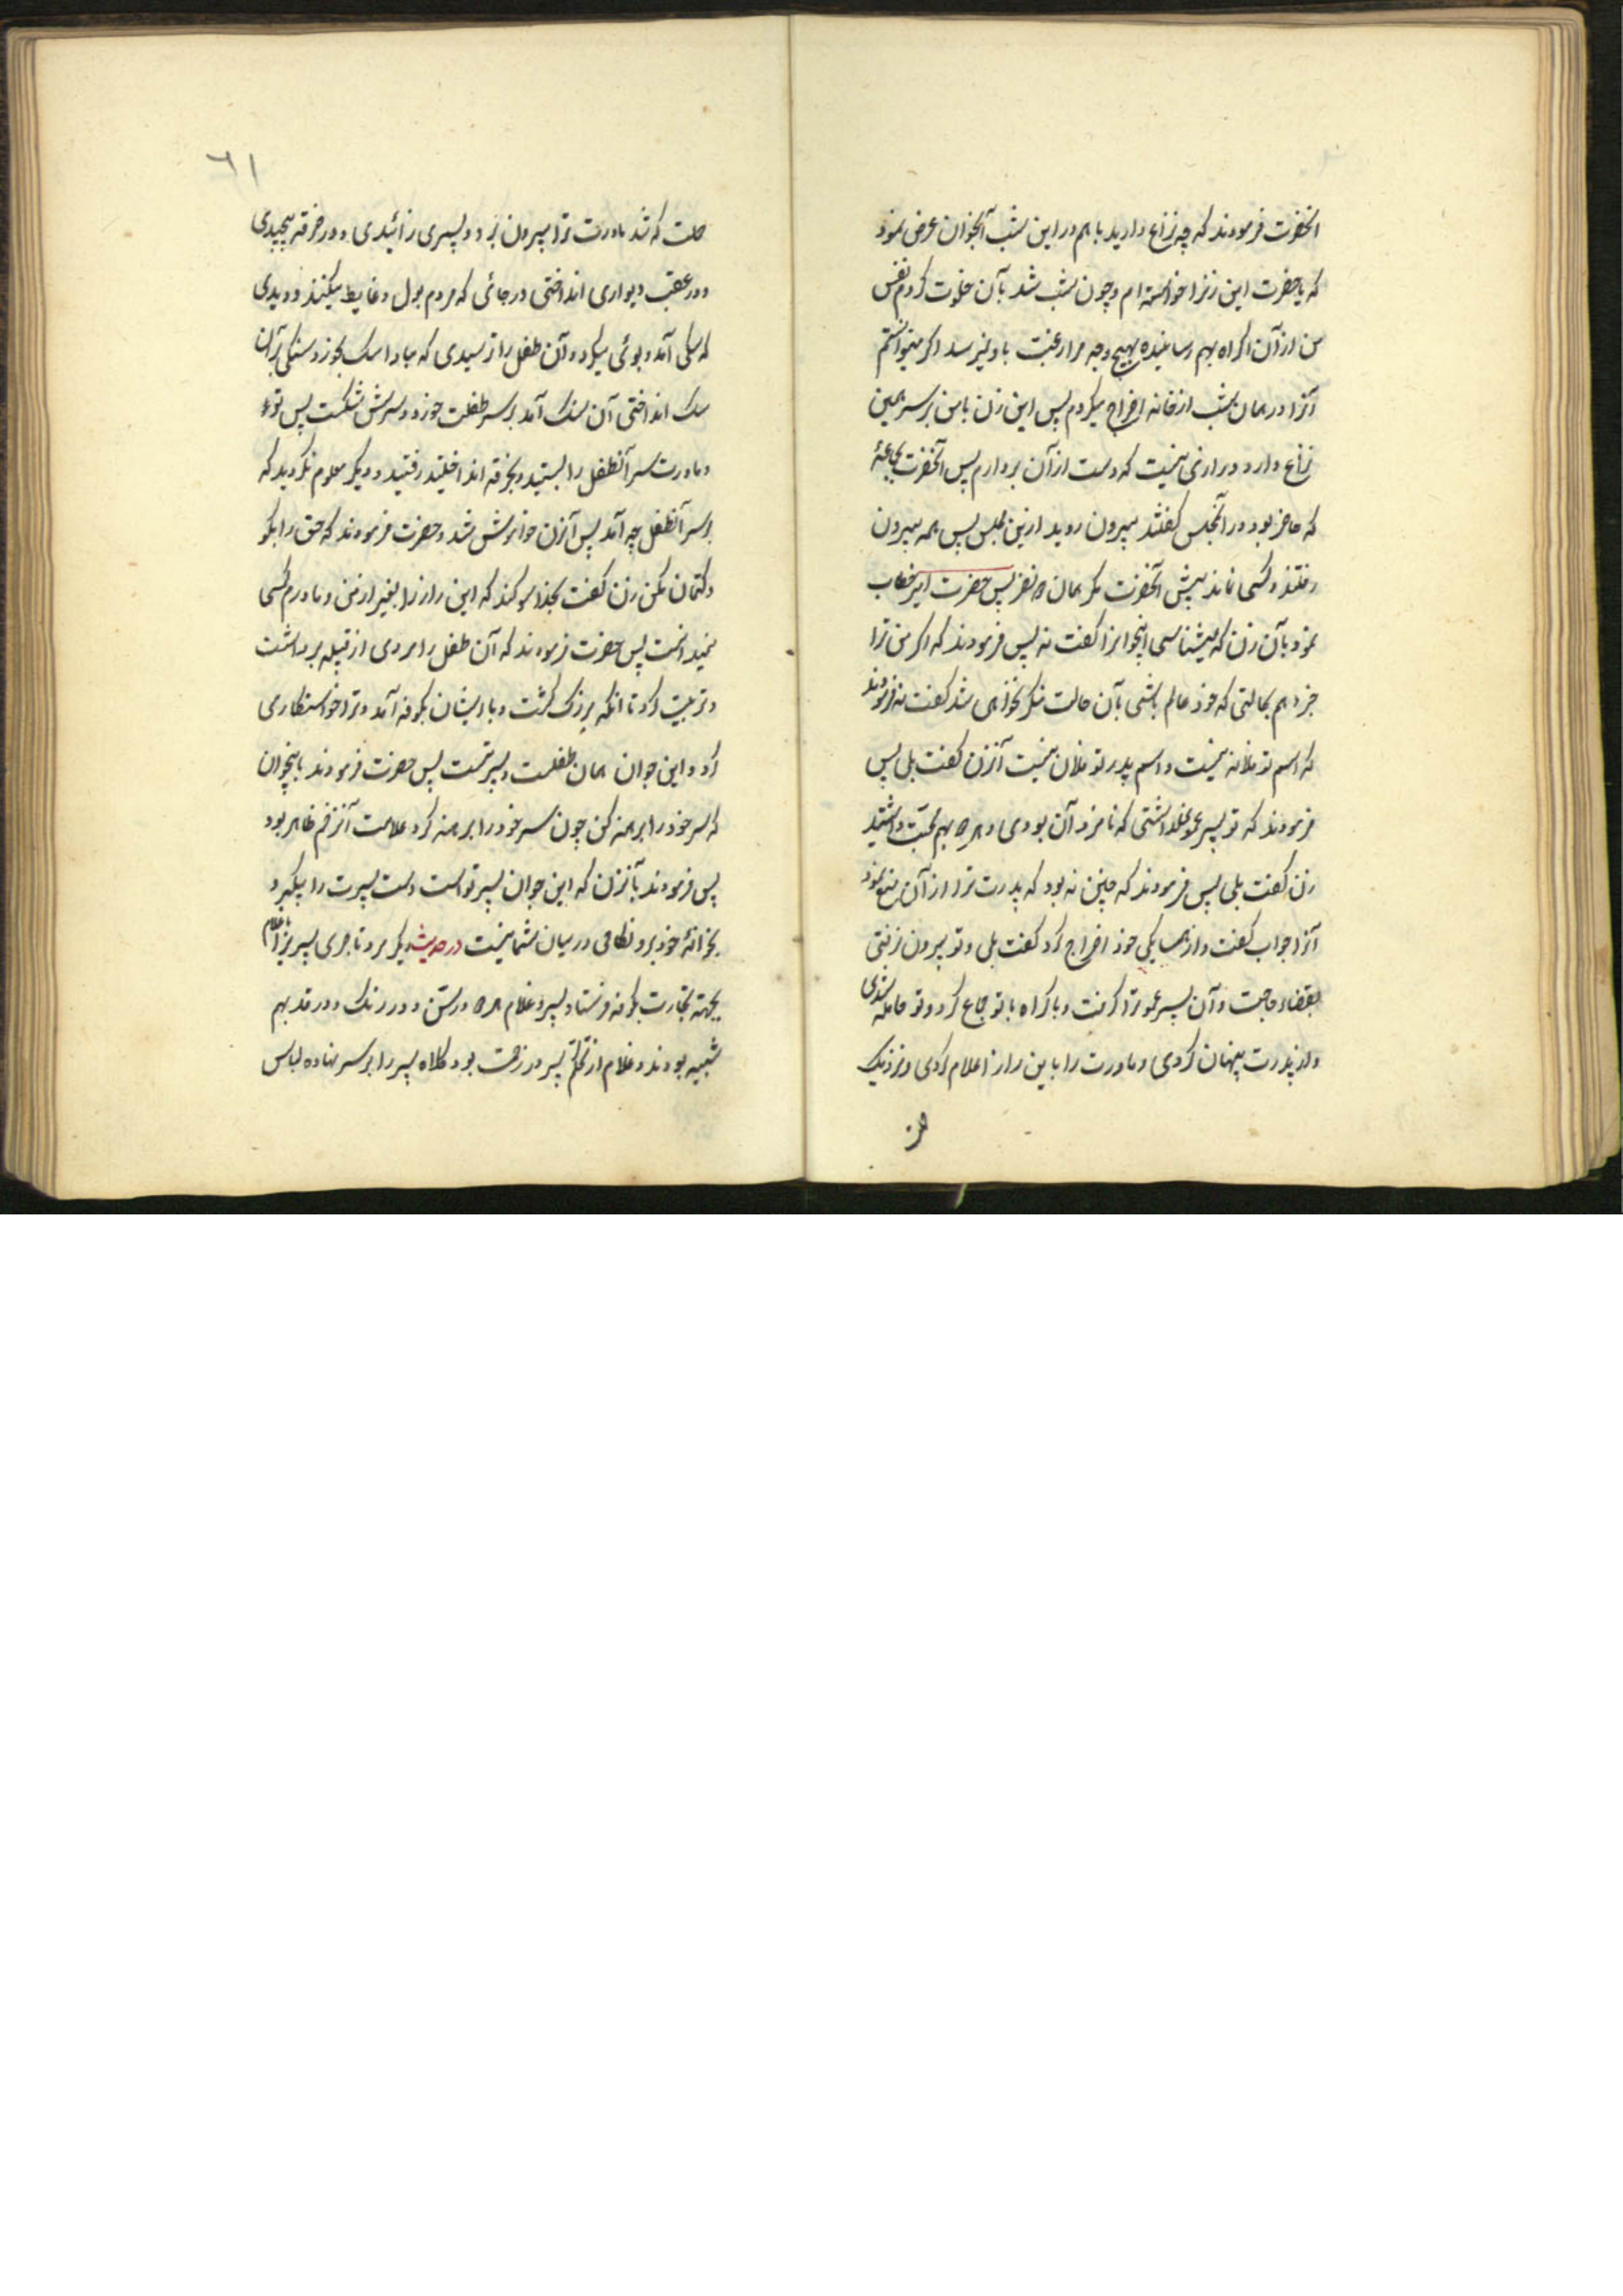 آنحضرت فرمودند که چه نزاع دارید با هم در این شب آنجوان عرض نمود
که یا حضرت این زنرا خواسته ام و چون شب شد بآن خلوت کردم نفس
من از آن اکراه بهم رسانیده بهیچ وجه مرا رغبت باو نمیرسد اگر میتوانستم
آنرا در همان شب از خانه اخراج میکردم پس این زن با من بر سر همین
نزاع دارد و راضی نیست که دست از آن بردارم پس آنحضرت بجماعهٔ
که حاضر بود در آنمجلس گفتند بیرون روید ازین مجلس پس همه بیرون
رفتند و کسی نماند پیش آنحضرت مگر همان دو نفر پس حضرت امیر خطاب
نمود بآن زن که میشناسی اینجوانرا گفت نه پس فرمودند که اگر من ترا
خبر دهم بحالتی که خود عالم باشی بآن حالت منکر نخواهی شد گفت نه فرمودند
که اسم تو فلانه نیست و اسم پدر تو فلان نیست آنزن گفت بلی پس
فرمودند که تو پسر عمو نداشتی که نامزد آن بودی و هر دو بهم محبت داشتید
زن گفت بلی پس فرمودند که چنین نه بود که پدرت ترا از آن منع نمود
آنرا جواب گفت و از همسایگی خود اخراج کرد گفت بلی و تو بیرون رفتی
بقضاء حاجت و آن پسر عمو ترا گرفت و باکراه با تو جماع کرد و تو حامله شدی
و از پدرت پنهان کردی و مادرت را باین راز اعلام کردی و نزدیک
۶۱
حلت که شد مادرت ترا بیرون برد و پسری زائیدی و در خرقه پیچیدی
و در عقب دیواری انداختی در جائی که مردم بول و غایط میکنند و دیدی
که سگی آمد و بوئی میکرد و آن طفل را ترسیدی که مبادا سگ بخورد سنگی بر آن
سگ انداختی آن سنگ آمد بر سر طفلت خورد و سرش شکست پس تو
و مادرت سر آنطفل را بستید و بخرقه انداخلتید رفتید و دیگر معلوم نگردید که
بر سر آنطفل چه آمد پس آنزن خاموش شد و حضرت فرمودند که حق را بگو
و کتمان مکن زن گفت بخدا سوگند که این راز را بغیر از من و مادرم کسی
نمیدانست پس حضرت فرمودند که آن طفل را مردی از قبیله برداشت
و تربیت کرد تا آنکه بزرگ گشت و با ایشان بکوفه آمد و ترا خواستکاری
کرد و این جوان همان طفلست و پسر تست پس حضرت فرمودند باینجوان
که سر خود را برهنه کن چون سر خود را برهنه کرد علامت آنزخم ظاهر بود
پس فرمودند بآنزن که این جوان پسر تو است دست پسرت را بگیر و
بخانهٔ خود برو نکاحی در میان شما نیست در حدیث دیگر مرد تاجری پسریرا با غلام
بجهة تجارت بکوفه فرستاد پسر و غلام هر دو در سن و در رنگ و در قد بهم
شبیه بودند و غلام از تحکم پسر در زحمت بود کلاه پسر را بر سر نهاده لباس